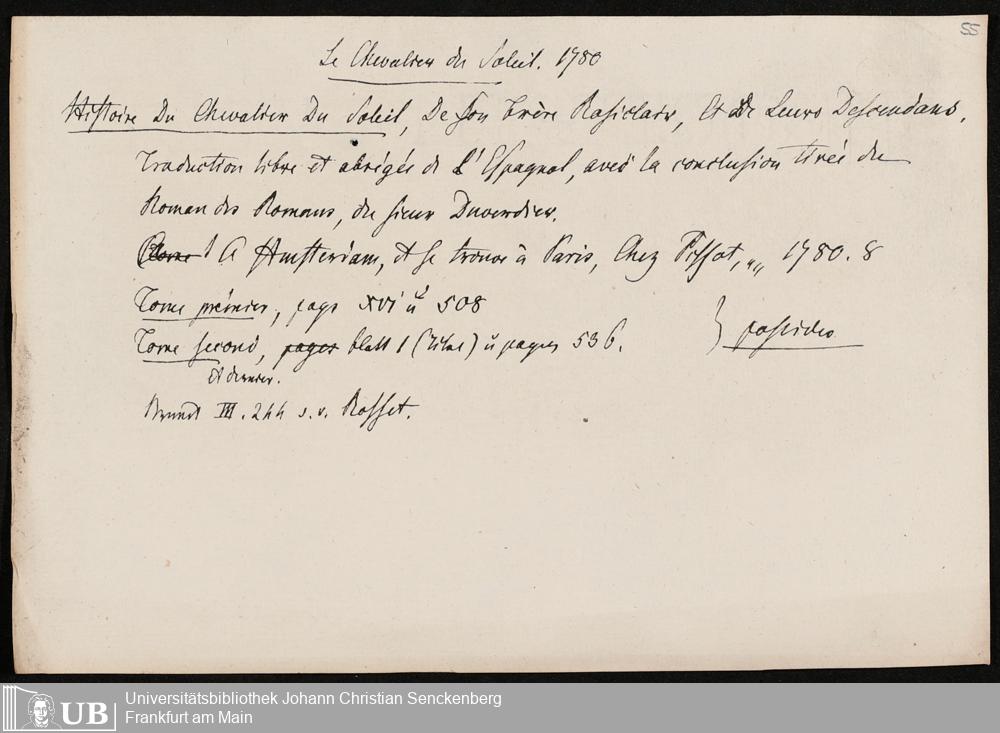 55
Le Chevalier du Soleil. 1780
Histoire Du Chevalier Du Soleil, De Son Frère Rosiclair, Et De Leurs Descendans,
Traduction libre et abrégée de L'Espagnol, avec la conclusion tirée du
Roman des Romans, du sieur Duverdier.
A Amsterdam, et se trouve à Paris, Chez Pissot, „„ 1780. 8
Tome prémier, pags XVI u 508
Tome second, pages blatt 1 (Titel) u pages 536. } possideo
et dernier.
Brunet III. 244 s. v. Rosset.
Universitätsbibliothek Johann Christian Senckenberg
Frankfurt am Main
UB